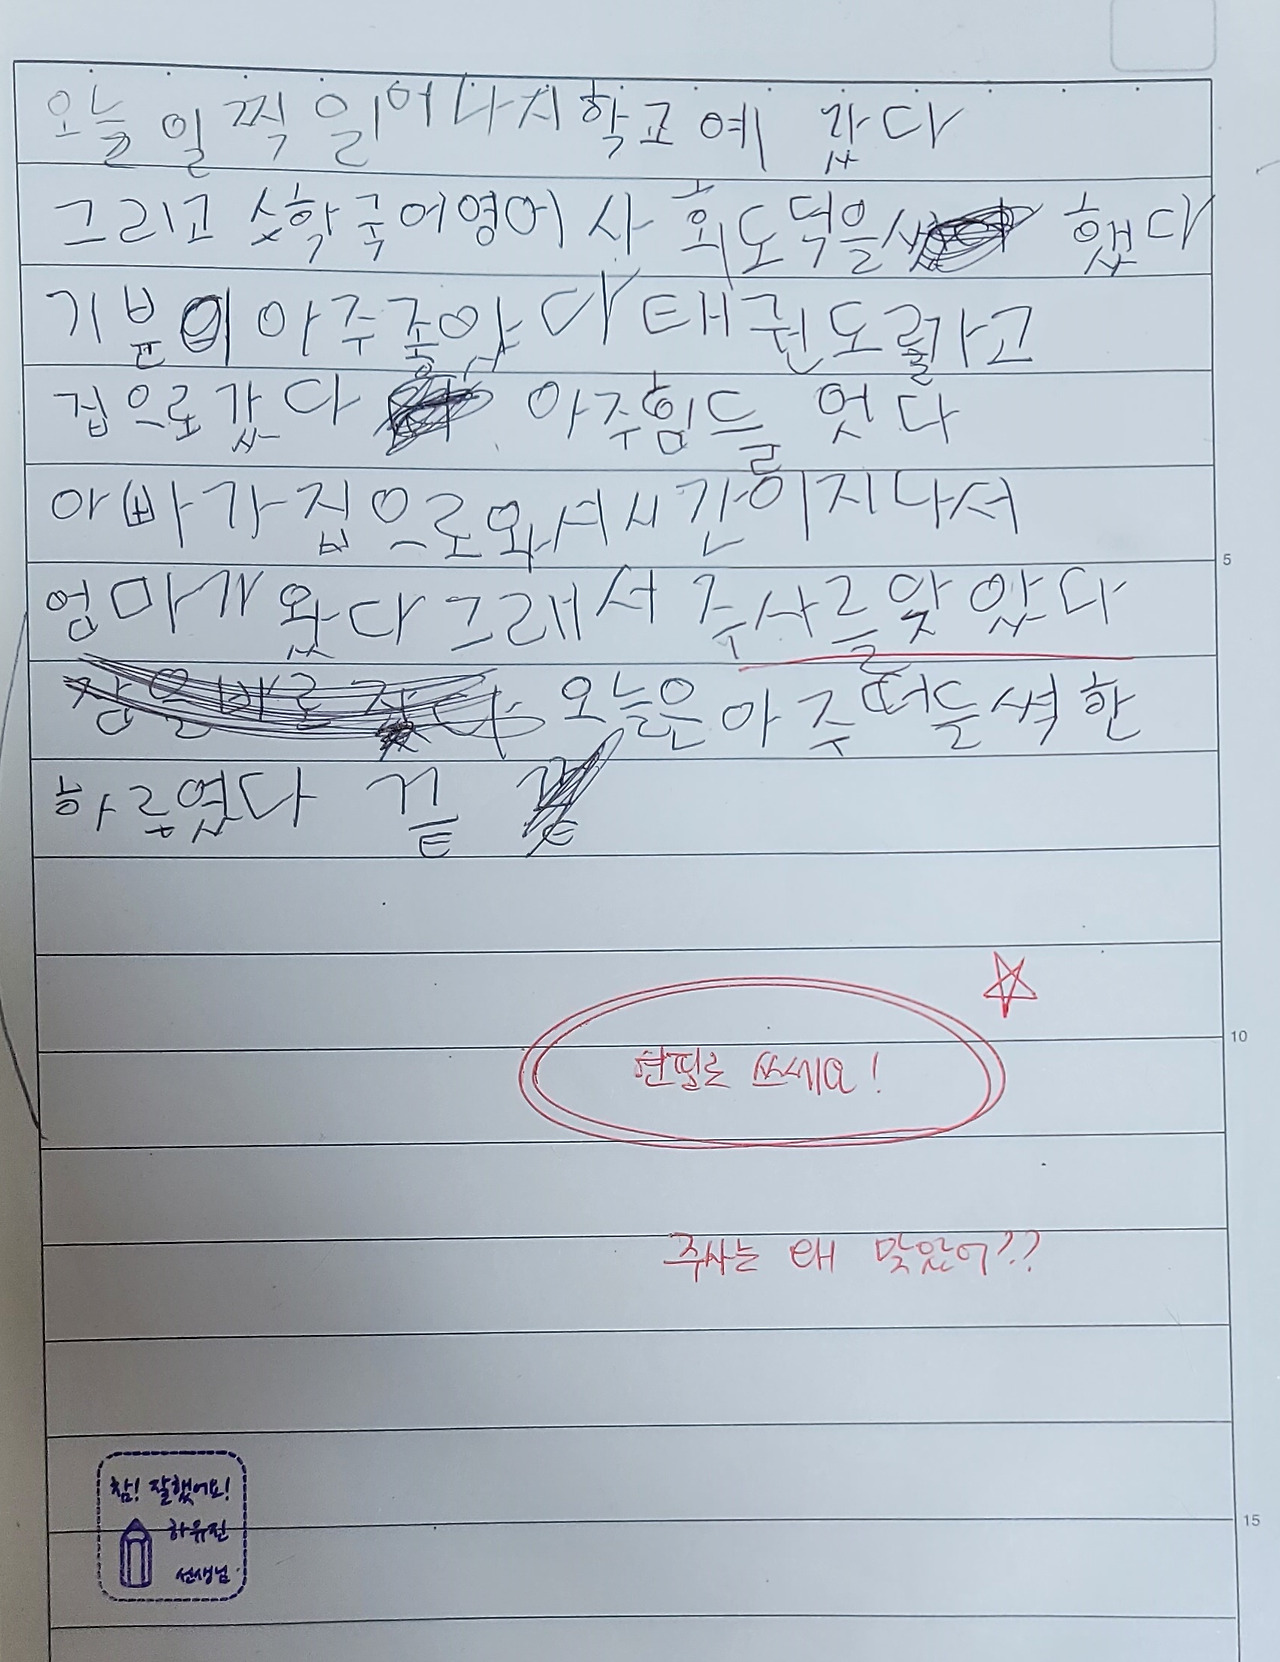 오늘 일찍 일어나서 학교에 갔다
그리고 수학국어영어사회도덕을 했다
기분이 아주좋았다 태권도를가고
집으로갔다 아주힘들었다
아빠가집으로와서시간이지나서
엄마가 왔다 그래서 주사를맞았다
오늘은아주떠들석한
하루였다 끝
연필로 쓰세요!
주사는 왜 맞았어??
참! 잘했어요!
하유진
선생님
5
10
15